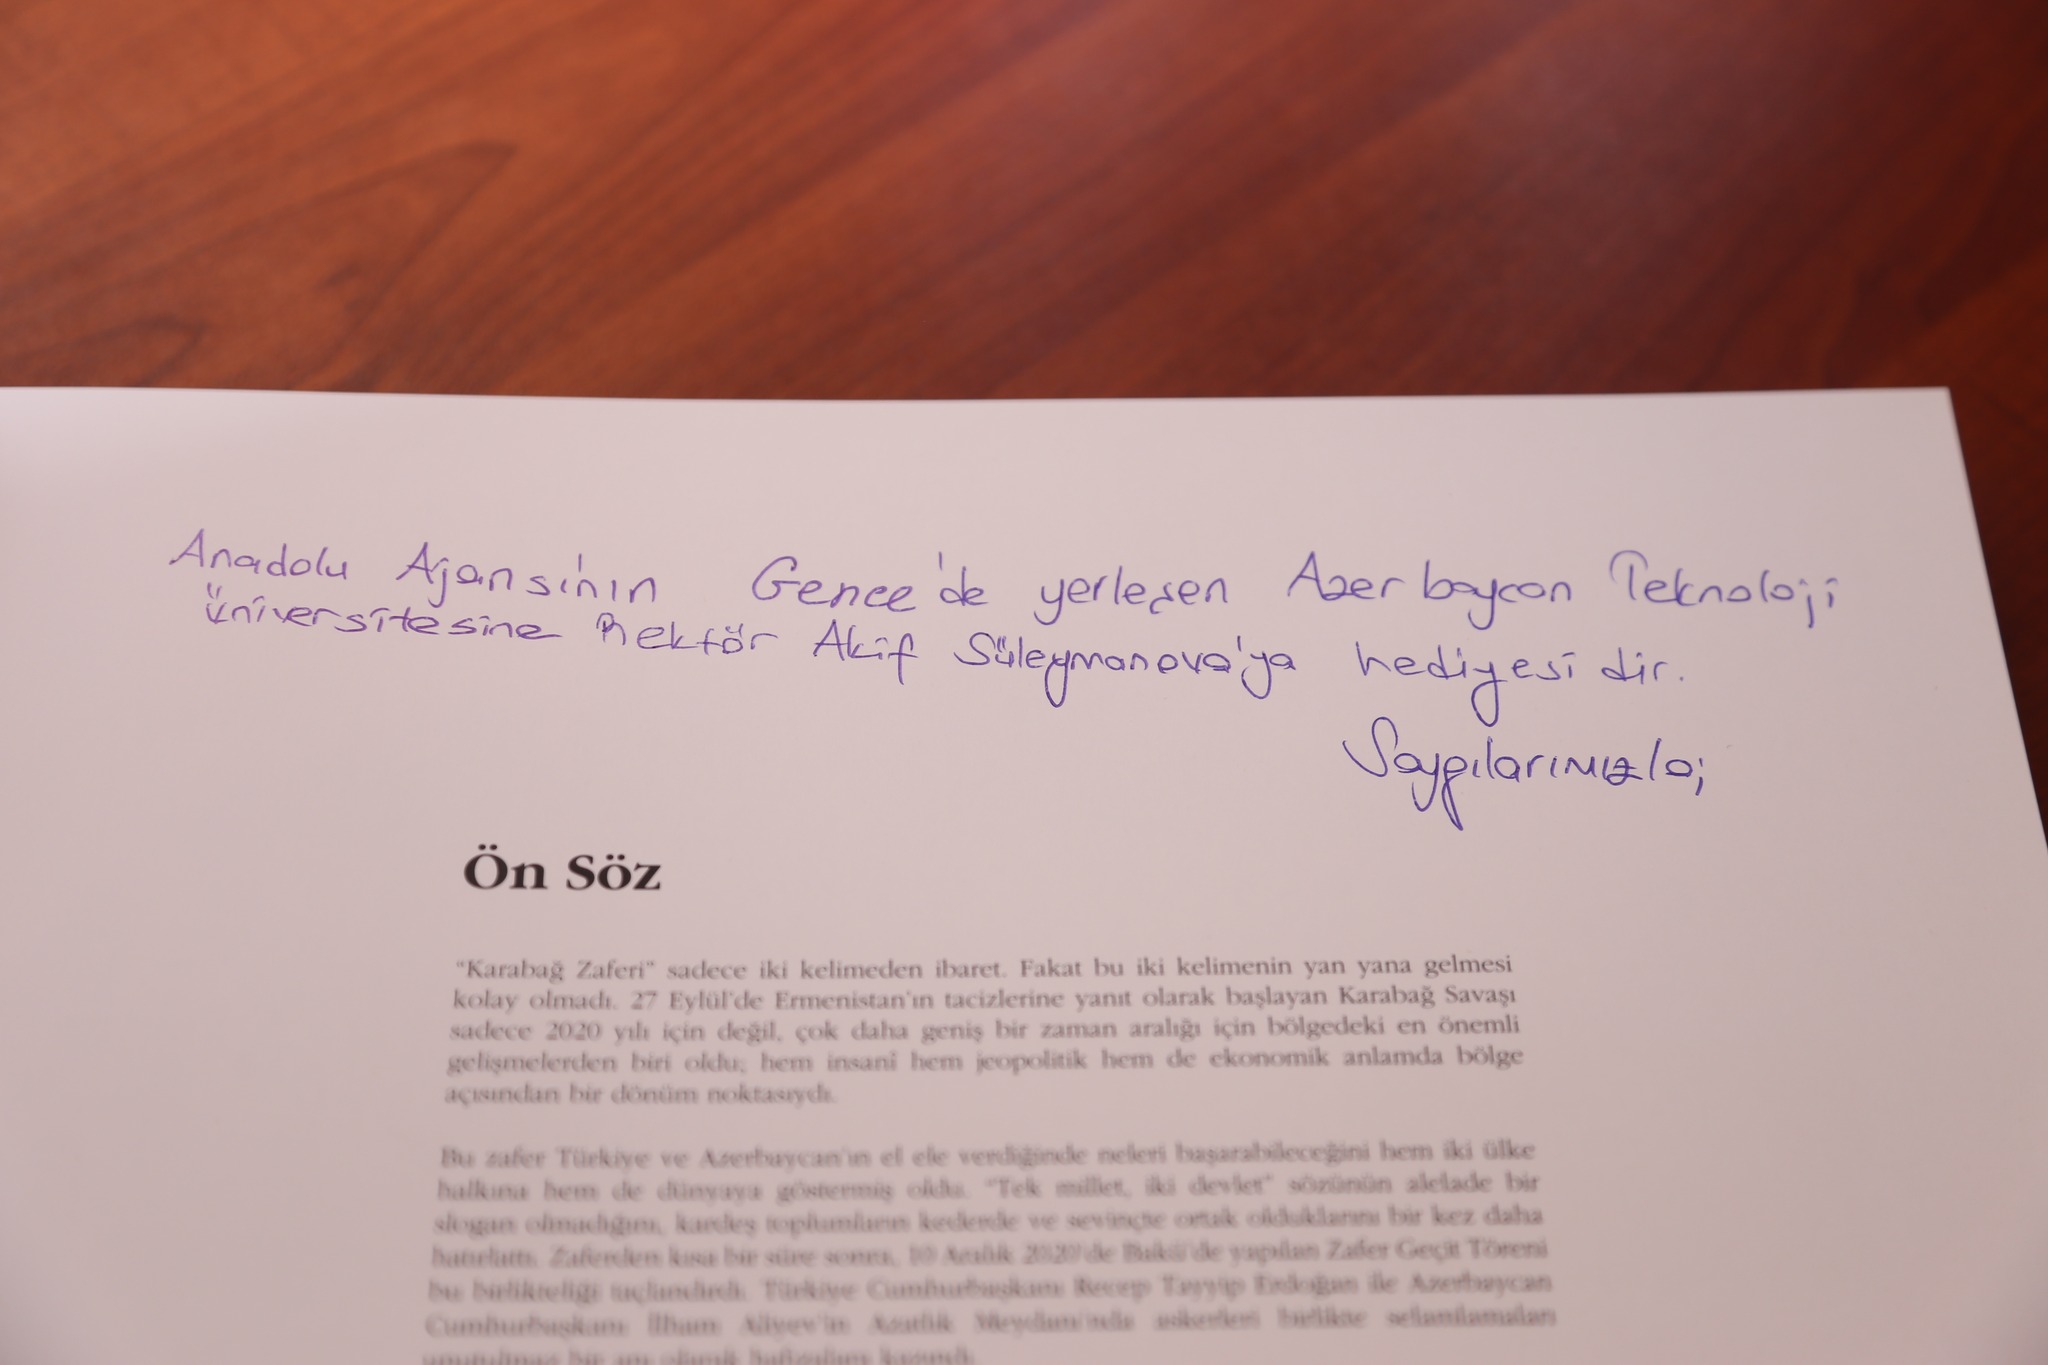 Anadolu Ajansı'nın Gence'de yerleşen Azerbaycan Teknoloji
üniversitesine Rektör Akif Süleymanova'ya hediyesidir.
Saygılarımızla;
Ön Söz
"Karabağ Zaferi" sadece iki kelimeden ibaret. Fakat bu iki kelimenin yan yana gelmesi
kolay olmadı. 27 Eylül'de Ermenistan'ın tacizlerine yanıt olarak başlayan Karabağ Savaşı
sadece 2020 yılı için değil, çok daha geniş bir zaman aralığı için bölgedeki en önemli
gelişmelerden biri oldu; hem insanî hem jeopolitik hem de ekonomik anlamda bölge
açısından bir dönüm noktasıydı.
Bu zafer Türkiye ve Azerbaycan'ın el ele verdiğinde neleri başarabileceğini hem iki ülke
halkına hem de dünyaya göstermiş oldu. "Tek millet, iki devlet" sözünün alelade bir
slogan olmadığını, kardeş toplumların kederde ve sevinçte ortak olduklarını bir kez daha
hatırlattı. Zaferden kısa bir süre sonra, 10 Aralık 2020'de Bakü'de yapılan Zafer Geçit Töreni
bu birlikteliği taçlandırdı. Türkiye Cumhurbaşkanı Recep Tayyip Erdoğan ile Azerbaycan
Cumhurbaşkanı İlham Aliyev'in Azatlık Meydanı'nda askerleri birlikte selamlamaları
unutulmaz bir anı olarak hafızalara kazındı.